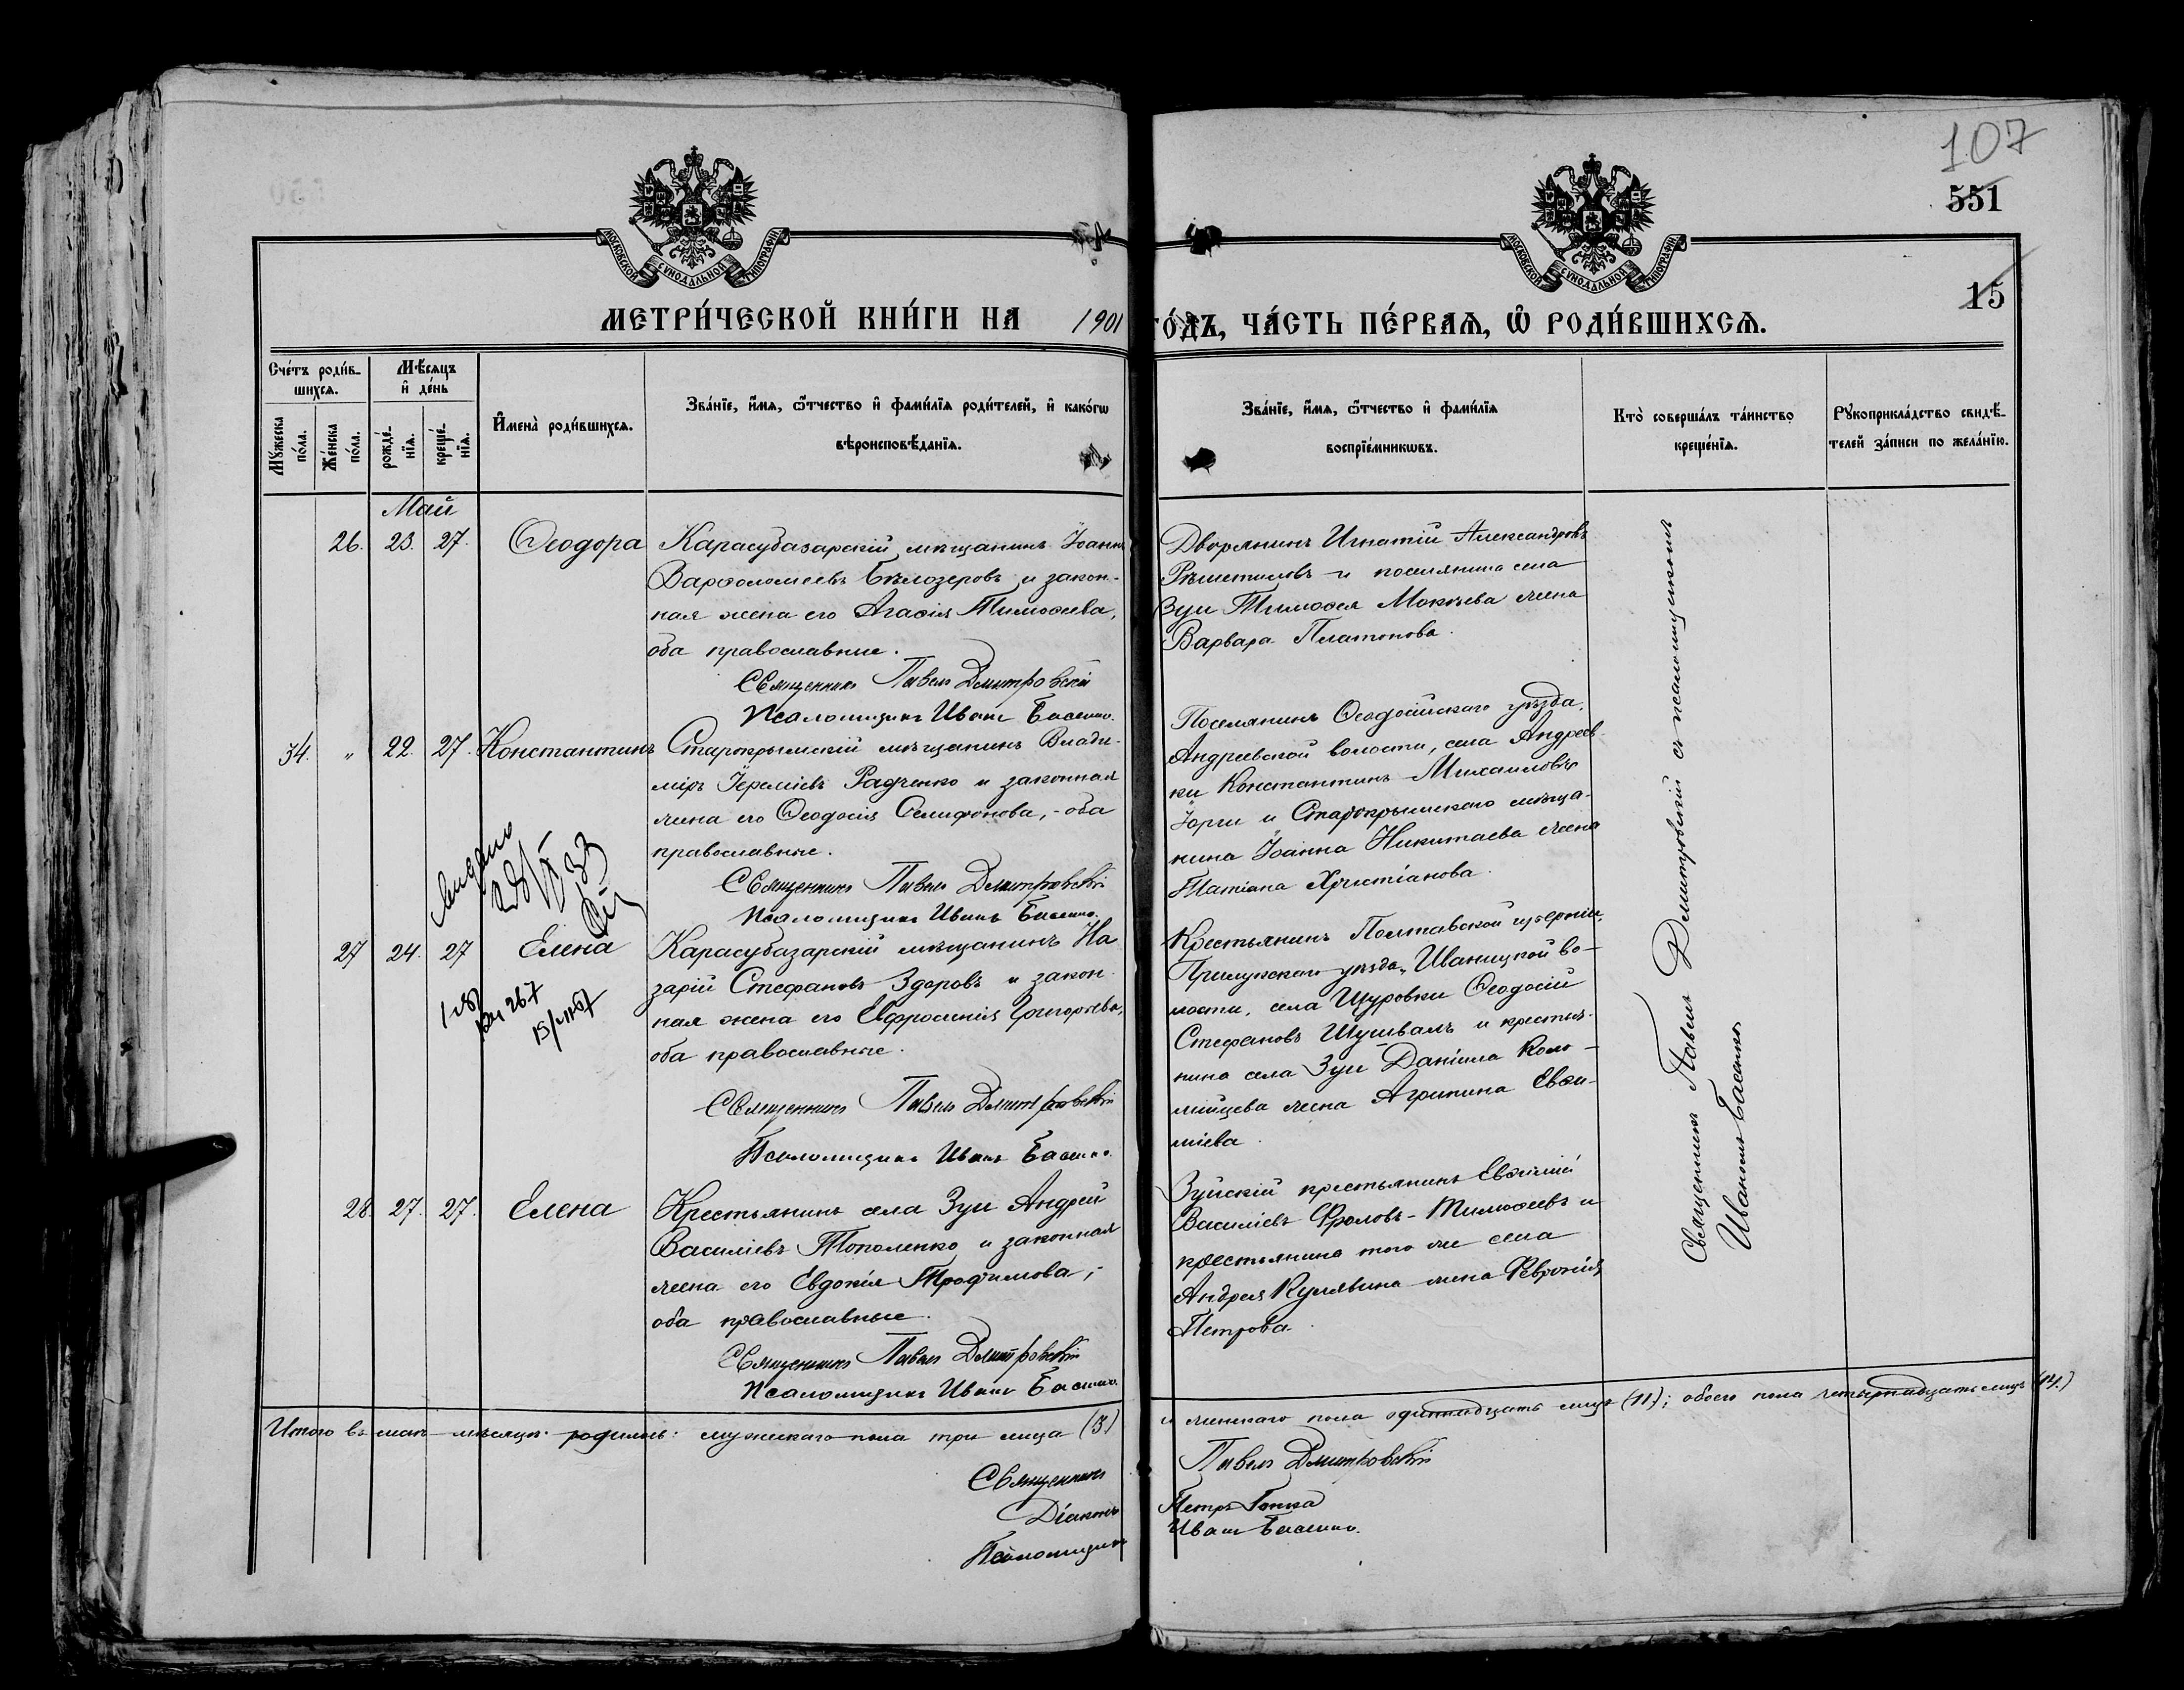 107
551
15
МОСКОВСКОЙ СУНОДАЛЬНОЙ ТИПОГРАФІИ
МОСКОВСКОЙ СУНОДАЛЬНОЙ ТИПОГРАФІИ
МЕТРИ́ЧЕСКОЙ КНИ́ГИ НА 1901
ГО́ДЪ, ЧА́СТЬ ПЕ́РВАѦ, Ѿ РОДИ́ВШИХСѦ.
Сче́тъ роди́в-
шихсѧ.
Мѣ́сѧцъ
и҆ де́нь
Мꙋ́жеска
по́ла.
Же́нска
по́ла.
рожде́-
нїѧ.
креще́-
нїѧ.
И҆мена̀ роди́вшихсѧ.
Зва́нїе, и҆́мѧ, ѻ҆́тчество и҆ фамі́лїѧ роди́телей, и҆ како́гѡ
вѣроисповѣ́данїѧ.
Зва́нїе, и҆́мѧ, ѻ҆́тчество и҆ фамі́лїѧ
воспрїе́мникѡвъ.
Кто̀ соверша́лъ та́инство
креще́нїѧ.
Рꙋкоприкла́дство свидѣ́-
телей за́писи по жела́нїю.
Май
26. 23. 27. Ѳеодора
Карасубазарскій мѣщанинъ Іоаннъ
Варѳоломеевъ Бѣлозеровъ и закон-
ная жена его Агаѳія Тимоѳеева,
оба православные.
Священникъ Павелъ Дмитровскій
Псаломщикъ Иванъ
Дворянинъ Игнатій Александровъ
Рѣшетиловъ и поселянина села
Зуи Тимоѳея Мокѣева жена
Варвара Платонова.
34. " 22. 27. Константинъ
Старокрымскій мѣщанинъ Влади-
міръ Іереміевъ Радченко и законная
жена его Ѳеодосія Селифонова, - оба
православные.
Священникъ Павелъ Дмитровскій
Псаломщикъ Иванъ
Поселянинъ Ѳеодосійскаго уѣзда,
Андреевской волости, села Андреев-
ки Константинъ Михаиловъ
и Старокрымскаго мѣща-
нина Іоанна Никитаева жена
Татіана Христіанова.
27 24. 27 Елена
Карасубазарскій мѣщанинъ На-
зарій Стефановъ Здоровъ и закон-
ная жена его Евфросинія Григорьева,
оба православные.
Священникъ Павелъ Дмитровскій
Псаломщикъ Иванъ
Крестьянинъ Полтавской губерніи,
Прилукскаго уѣзда, Иваницкой во-
лости, села Щуровки Ѳеодосій
Стефановъ и крестья-
нина села Зуи Даніила Коло-
мійцева жена Агрипина Евѳи-
міева.
28. 27. 27. Елена
Крестьянинъ села Зуи Андрей
Василіевъ Тополенко и законная
жена его Евдокія Трофимова;
оба православные.
Священникъ Павелъ Дмитровскій
Псаломщикъ Иванъ
Зуйскій крестьянинъ Евѳимій
Василіевъ Фроловъ-Тимоѳеевъ и
крестьянина того же села
Андрея жена Февронія
Петрова.
Священникъ Павелъ Дмитровскій съ псаломщикомъ
Иваномъ
Итого въ маѣ мѣсяцѣ родилось: мужескаго пола три лица (3)
и женскаго пола одиннадцать лицъ (11); обоего пола четырнадцать лицъ (14.)
Священникъ Павелъ Дмитровскій
Діаконъ Петръ
Псаломщикъ Иванъ